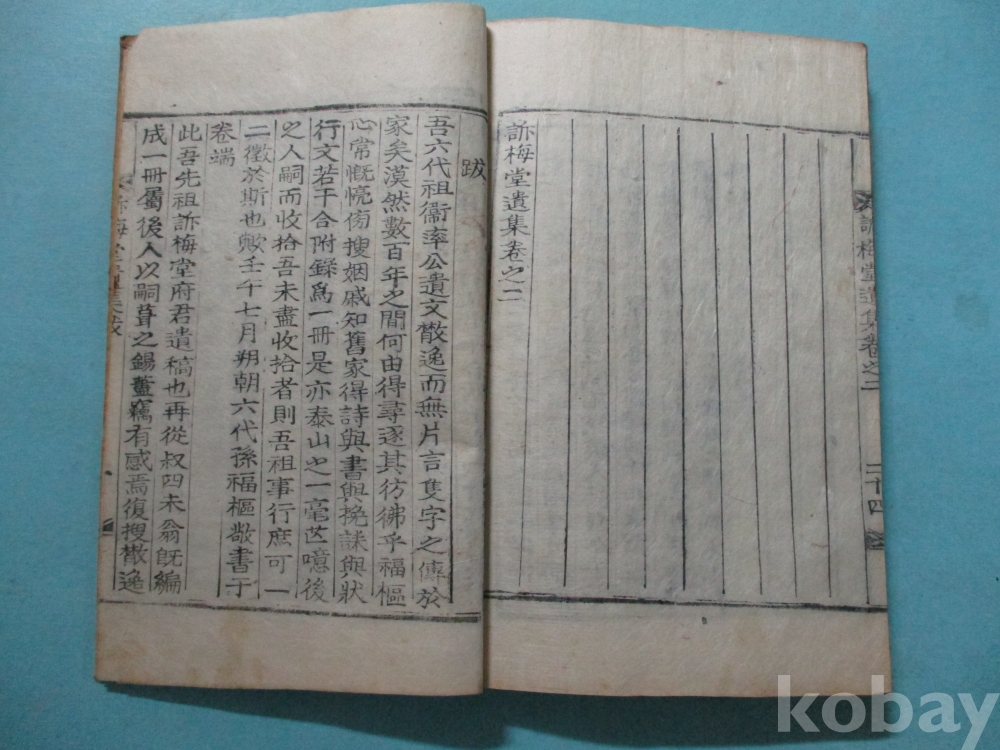 訴梅堂遺集卷之二
二十四
訴梅堂遺集卷之二
跋
吾六代祖衞率公遺文散逸而無片言隻字之傳於
家矣漠然數百年之間何由得尋逐其彷彿乎福樞
心常慨惋傍搜姻戚知舊家得詩與書與挽誄與狀
行文若干合附錄爲一冊是亦泰山之一毫芒噫後
之人嗣而收拾吾未盡收拾者則吾祖事行庶可一
二徵於斯也歟壬午七月朔朝六代孫福樞敬書于
卷端
此吾先祖訴梅堂府君遺稿也再從叔四未翁旣編
成一冊屬後人以嗣葺之錫 竊有感焉復搜散逸
訴梅堂遺集跋
kobay